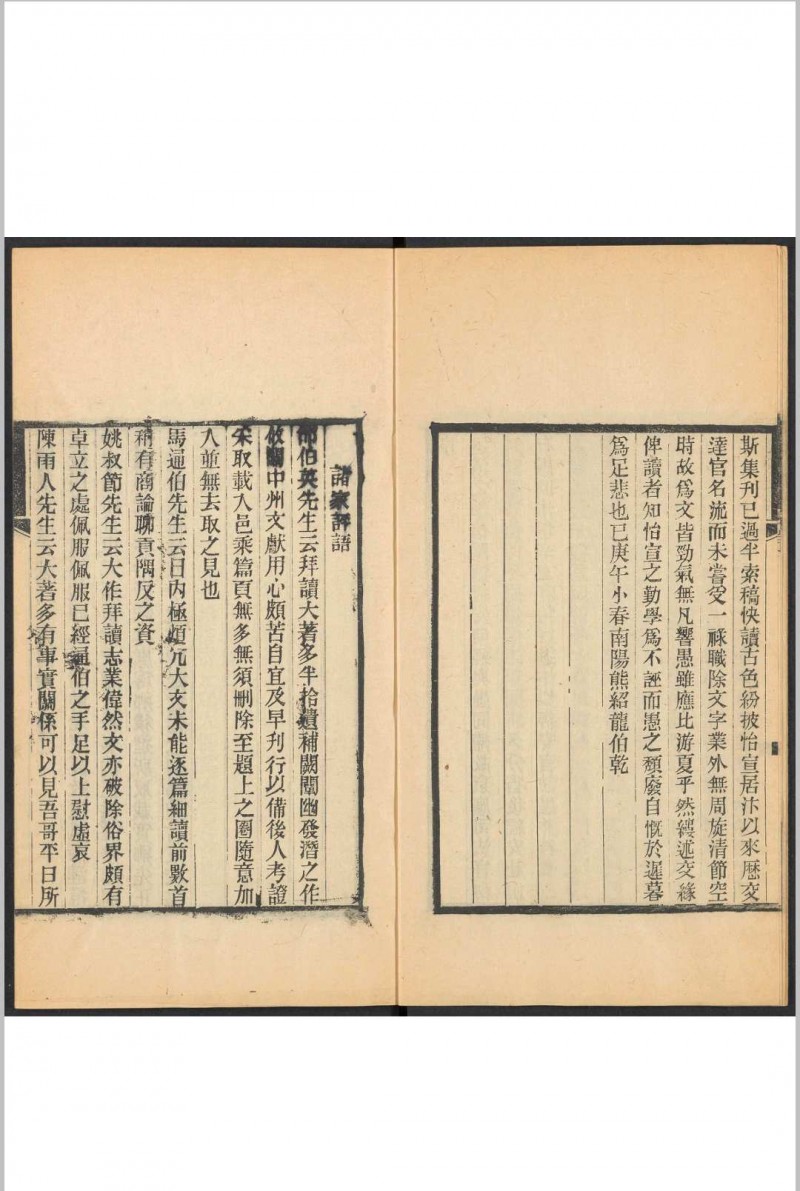 斯集刊已過半索稿快讀古色紛披怡宣居汴以來歷交
達官名流而未嘗受一祿職除文字業外無周旋清節空
時故爲文皆勁氣無凡響愚雖應比游夏乎然縷述交緣
俾讀者知怡宣之勤學爲不誣而愚之頹廢自慨於遲暮
爲足悲也已庚午小春南陽熊紹龍伯乾
諸家評語
邵伯英先生云拜讀大著多半拾遺補闕闡幽發潛之作
攸關中州文獻用心頗苦自宜及早刊行以備後人考證
采取載入邑乘篇頁無多無須刪除至題上之圈隨意加
入並無去取之見也
馬通伯先生云日内極煩冗大文未能逐篇細讀前數首
稍有商論聊貢隅反之資
姚叔節先生云大作拜讀志業偉然文亦破除俗界頗有
卓立之處佩服佩服已經通伯之手足以上慰虛哀
陳雨人先生云大著多有事實關係可以見吾哥平日所